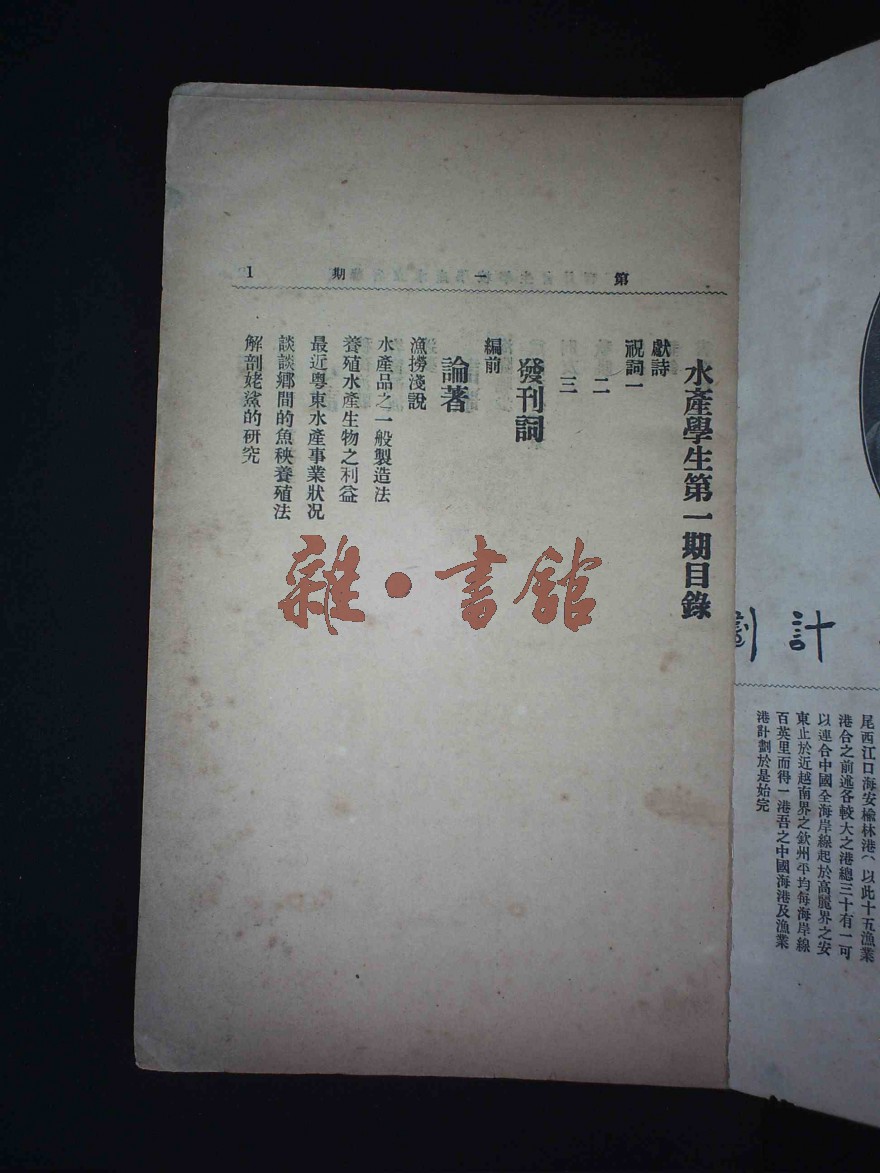 劃 計
尾西江口海安楡林港(以此十五漁業
港合之前述各較大之港總三十有一可
以連合中國全海岸線起於高麗界之安
東止於近越南界之欽州平均每海岸線
百英里而得一港吾之中國海港及漁業
港計劃於是始完
第一期 1
水產學生第一期目錄
獻詩
祝詞一
二
三
發刊詞
編前
論著
漁撈淺說
水產品之一般製造法
養殖水產生物之利益
最近粵東水產事業狀况
談談鄉間的魚秧養殖法
解剖姥鯊的研究
雜·書館